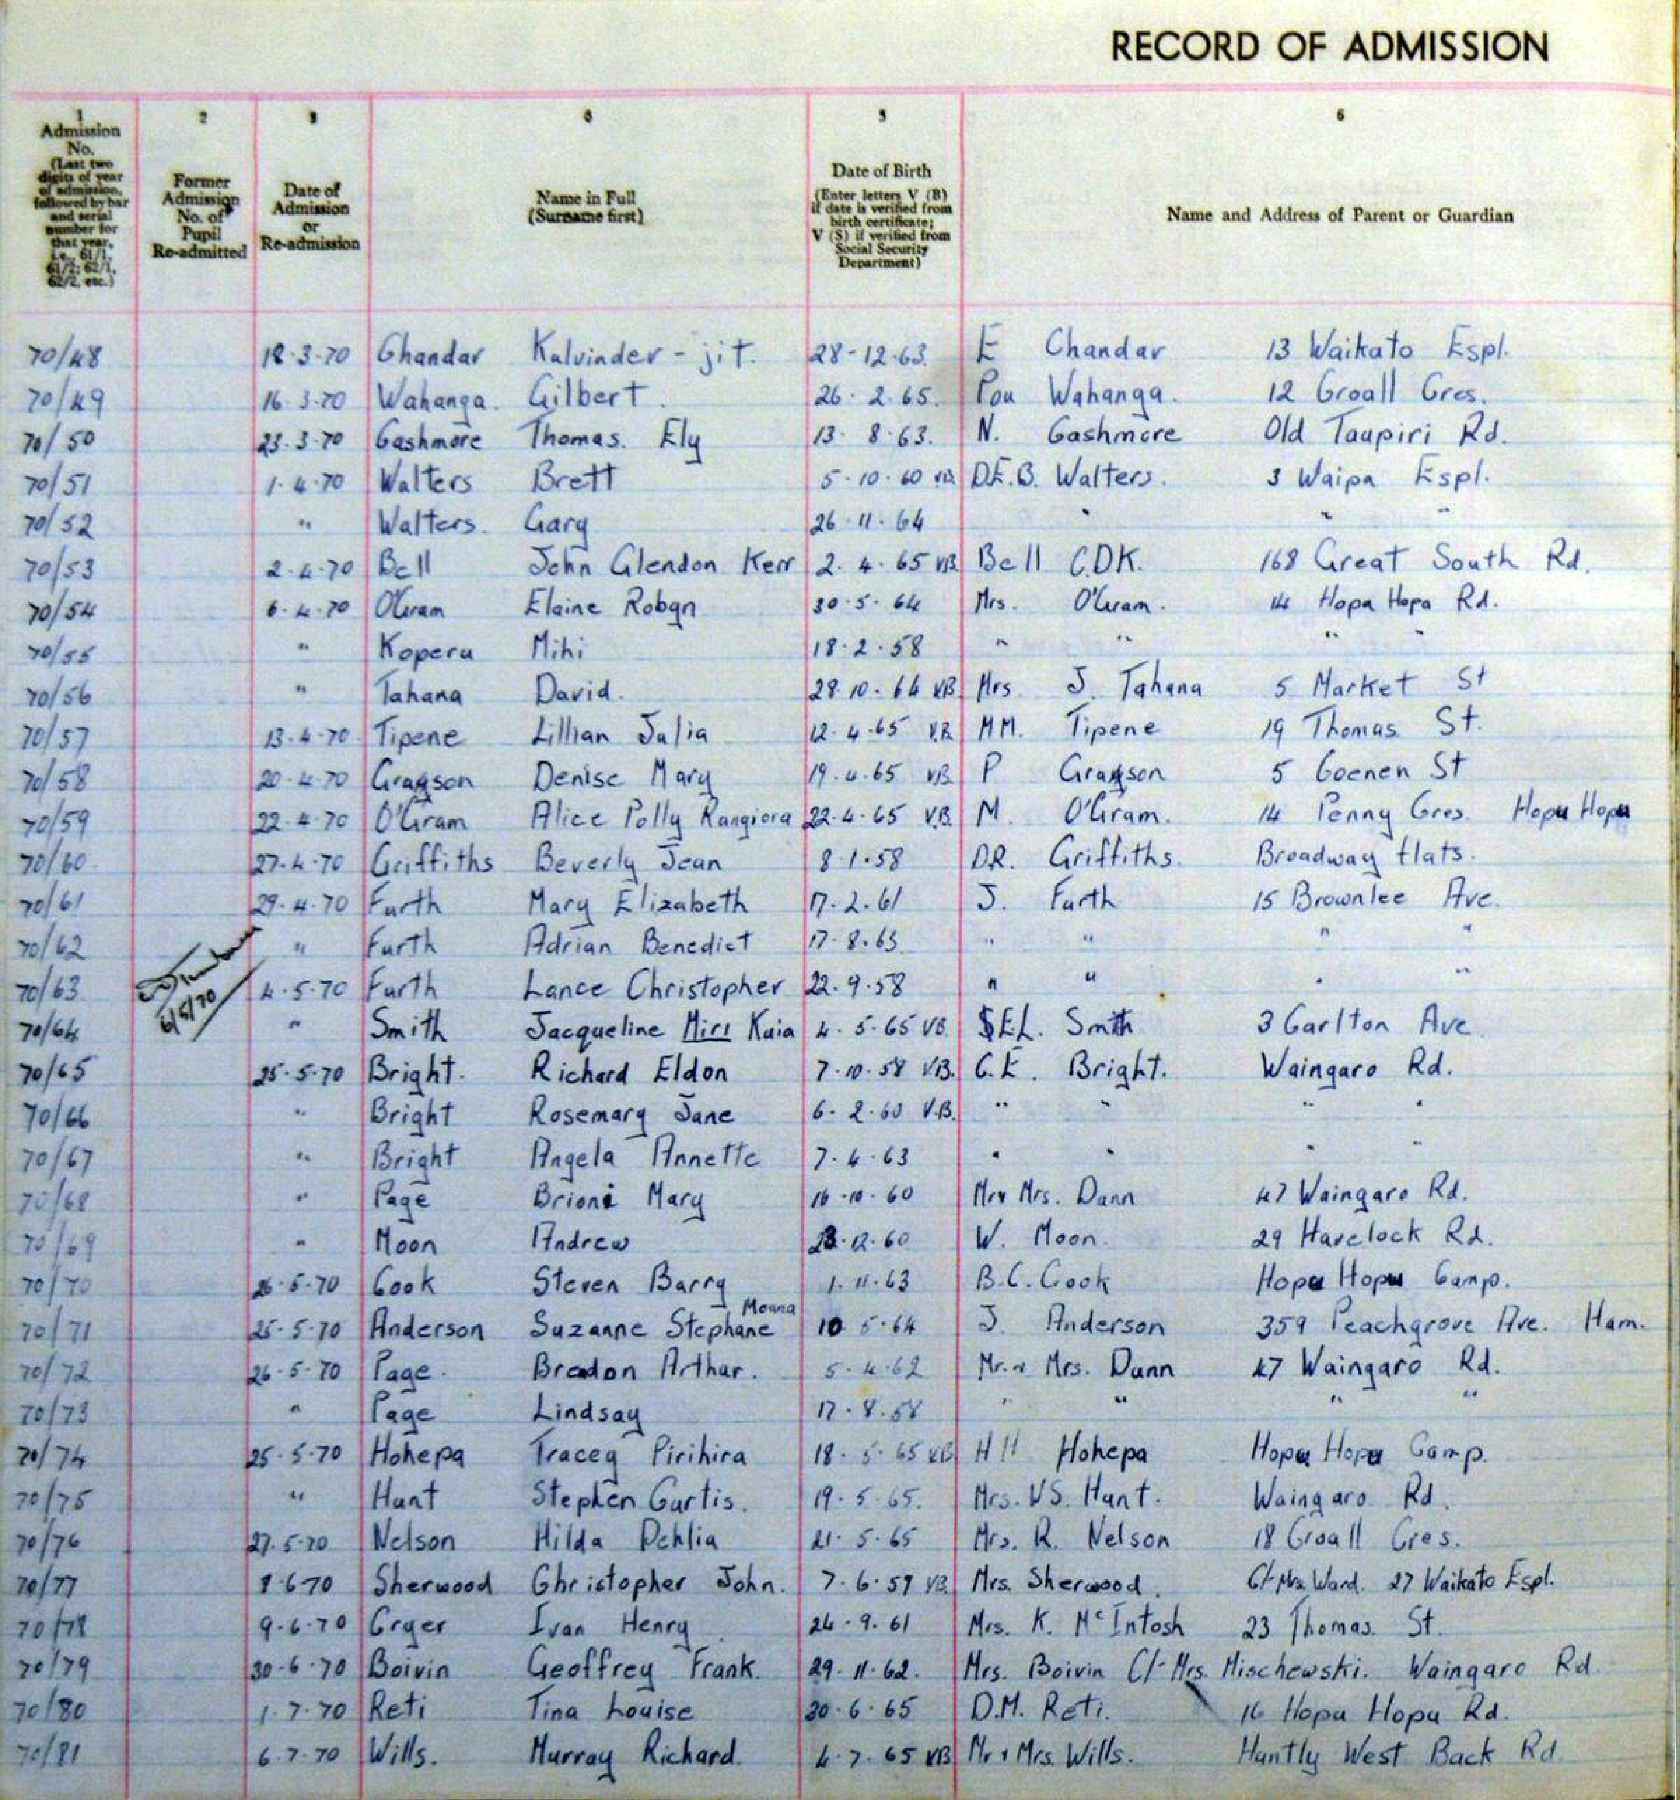 RECORD OF ADMISSION
1 2 3 4 5 6
Admission No. (Last two digits of year of admission, followed by bar and serial number for that year, i.e., 61/1, 61/2; 62/1, 62/2, etc.)
Former Admission No. of Pupil Re-admitted
Date of Admission or Re-admission
Name in Full (Surname first)
Date of Birth (Enter letters V (B) if date is verified from birth certificate; V (S) if verified from Social Security Department)
Name and Address of Parent or Guardian
70/48 18·3·70 Chandar Kalvinder-jit. 28-12·63. E Chandar 13 Waikato Espl.
70/49 16·3·70 Wahanga. Gilbert. 26·2·65. Pou Wahanga. 12 Croall Cres.
70/50 23·3·70 Cashmore Thomas. Ely 13·8·63. N. Cashmore Old Taupiri Rd.
70/51 1·4·70 Walters Brett 5·10·60 VB. D.E.B. Walters. 3 Waipa Espl.
70/52 " Walters. Gary 26·11·64 " " "
70/53 2·4·70 Bell John Glendon Kerr 2·4·65 VB. Bell C.D.K. 168 Great South Rd.
70/54 6·4·70 O'Gram Elaine Robyn 30·5·64 Mrs. O'Gram. 14 Hopu Hopu Rd.
70/55 " Koperu Mihi 18·2·58 " " " "
70/56 " Tahana David. 28·10·64 VB Mrs. J. Tahana 5 Market St
70/57 13·4·70 Tipene Lillian Julia 12·4·65 V.B. MM. Tipene 19 Thomas St.
70/58 20·4·70 Grayson Denise Mary 19·4·65 VB. P Grayson 5 Coenen St
70/59 22·4·70 O'Gram Alice Polly Rangiora 22·4·65 V.B. M. O'Gram. 14 Penny Cres. Hopu Hopu
70/60 27·4·70 Griffiths Beverly Jean 8·1·58 D.R. Griffiths. Broadway Flats.
70/61 29·4·70 Furth Mary Elizabeth 17·2·61 J. Furth 15 Brownlee Ave.
70/62 " Furth Adrian Benedict 17·8·63 " " " "
70/63 6/5/70 4·5·70 Furth Lance Christopher 22·9·58 " " " "
70/64 " Smith Jacqueline Miri Kaia 4·5·65 VB. S.E.L. Smith 3 Carlton Ave.
70/65 25·5·70 Bright. Richard Eldon 7·10·58 V.B. C.E. Bright. Waingaro Rd.
70/66 " Bright Rosemary Jane 6·2·60 V.B. " " " "
70/67 " Bright Angela Annette 7·4·63 " " " "
70/68 " Page Brioni Mary 16·10·60 Mr & Mrs. Dunn 47 Waingaro Rd.
70/69 " Moon Andrew 23·12·60 W. Moon. 29 Havelock Rd.
70/70 26·5·70 Cook Steven Barry 1·11·63 B.C. Cook Hopu Hopu Camp.
70/71 25·5·70 Anderson Suzanne Stephane Moana 10 5·64 J. Anderson 359 Peachgrove Ave. Ham.
70/72 26·5·70 Page. Bredon Arthur. 5·4·62 Mr. & Mrs. Dunn 47 Waingaro Rd.
70/73 " Page Lindsay 17·8·58 " " " "
70/74 25·5·70 Hohepa Tracey Pirihira 18·5·65 VB HH Hohepa Hopu Hopu Camp.
70/75 " Hunt Stephen Curtis. 19·5·65. Mrs. V.S. Hunt. Waingaro Rd.
70/76 27·5·70 Nelson Hilda Dehlia 21·5·65 Mrs. R. Nelson 18 Croall Cres.
70/77 8·6·70 Sherwood Christopher John. 7·6·59 VB. Mrs. Sherwood. C/- Mrs Ward. 27 Waikato Espl.
70/78 9·6·70 Cryer Ivan Henry. 24·9·61 Mrs. K. McIntosh 23 Thomas St.
70/79 30·6·70 Boivin Geoffrey Frank. 29·11·62. Mrs. Boivin C/- Mrs. Mischewski. Waingaro Rd.
70/80 1·7·70 Reti Tina Louise 30·6·65 D.M. Reti. 16 Hopu Hopu Rd.
70/81 6·7·70 Wills. Murray Richard. 4·7·65 VB Mr & Mrs Wills. Huntly West Back Rd.